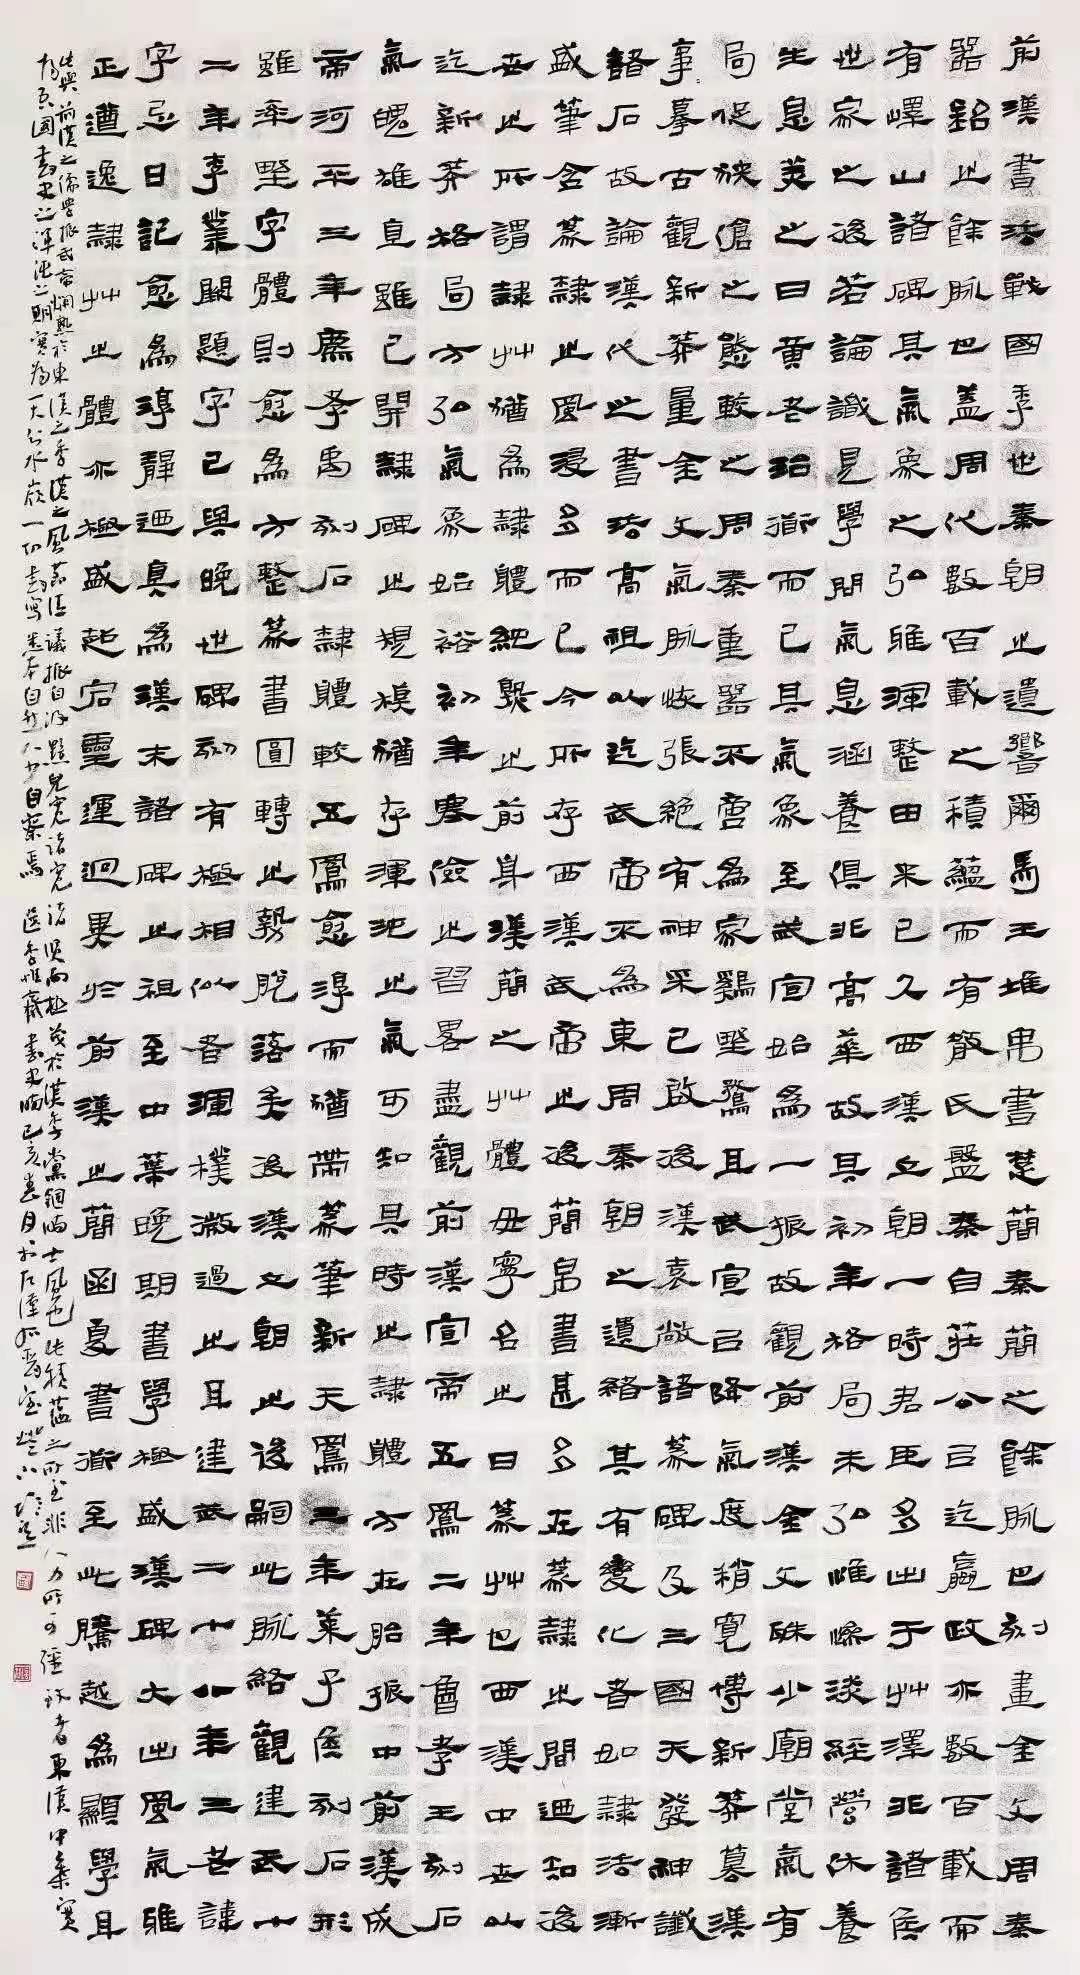 前漢書法戰國季世秦朝之遺響爾馬王堆帛書楚簡秦簡之餘脈也刻畫金文周秦
器銘之餘脈也蓋周代數百載之積蘊而有散氏盤秦自莊公以迄嬴政亦數百載而
有嶧山諸碑其氣象之弘雅渾整由來已久西漢立朝一時君臣多出于艸澤非諸侯
世家之後若論識見學問氣息涵養俱非高華故其初年格局未弘惟澹淡經營休養
生息美之曰黃老治術而已其氣象至武宣始為一振故觀前漢金文殊少廟堂氣有
局促狹傖之態較之周秦重器不啻為家鷄野鶩且武宣以降氣度稍寬博新莽募漢
事摹古觀新莽量金文氣脈恢張絕有神采已啟後漢袁敞諸篆碑及三國天發神讖
諸石故論漢代之書法高祖以迄武帝不為東周秦朝之遺緒其有變化者如隸法漸
盛筆含篆隸之風浸多而已今所存西漢武帝之後簡帛書甚多在篆隸之間迴知後
世之所謂隸艸猶為隸體之前身漢簡之艸體毋寧名之曰篆艸也西漢中世以
迄新莽格局方弘氣象始裕初年寒儉之習畧盡觀前漢宣帝五鳳二年魯孝王刻石
氣魄雄直雖已開隸碑之規模猶存渾沌之氣可知其時之隸體方在胎振中前漢成
帝河平三年麃孝禹刻石隸體較五鳳愈淳而猶帶篆筆新天鳳三年萊子侯刻石形
雖率野字體則愈為方整篆書圓轉之勢脫落矣後漢立朝此後嗣此脈絡觀建武十
二年李業闕題字已與晚世碑刻有極相似者渾樸微過之耳建武二十八年三老諱
字忌日記愈為淳靜迺真為漢末諸碑之祖至中葉晚期書學極盛漢碑大出風氣雅
正遒逸隸艸之體亦極盛起宕靈運迥異於前漢之簡函夏書術至此騰越為顯學耳
此與前漢之儒學振武帝爛熟於東漢之季漢之風氣清議振自諸賢而極茂於漢季黨錮士風也此積蘊之所至非人力所可強者東漢中葉實
為吾國書史之渾沌之期實為一大分水嶺一切書寫悉本自然自察焉 選李惟齋書史 己亥春月